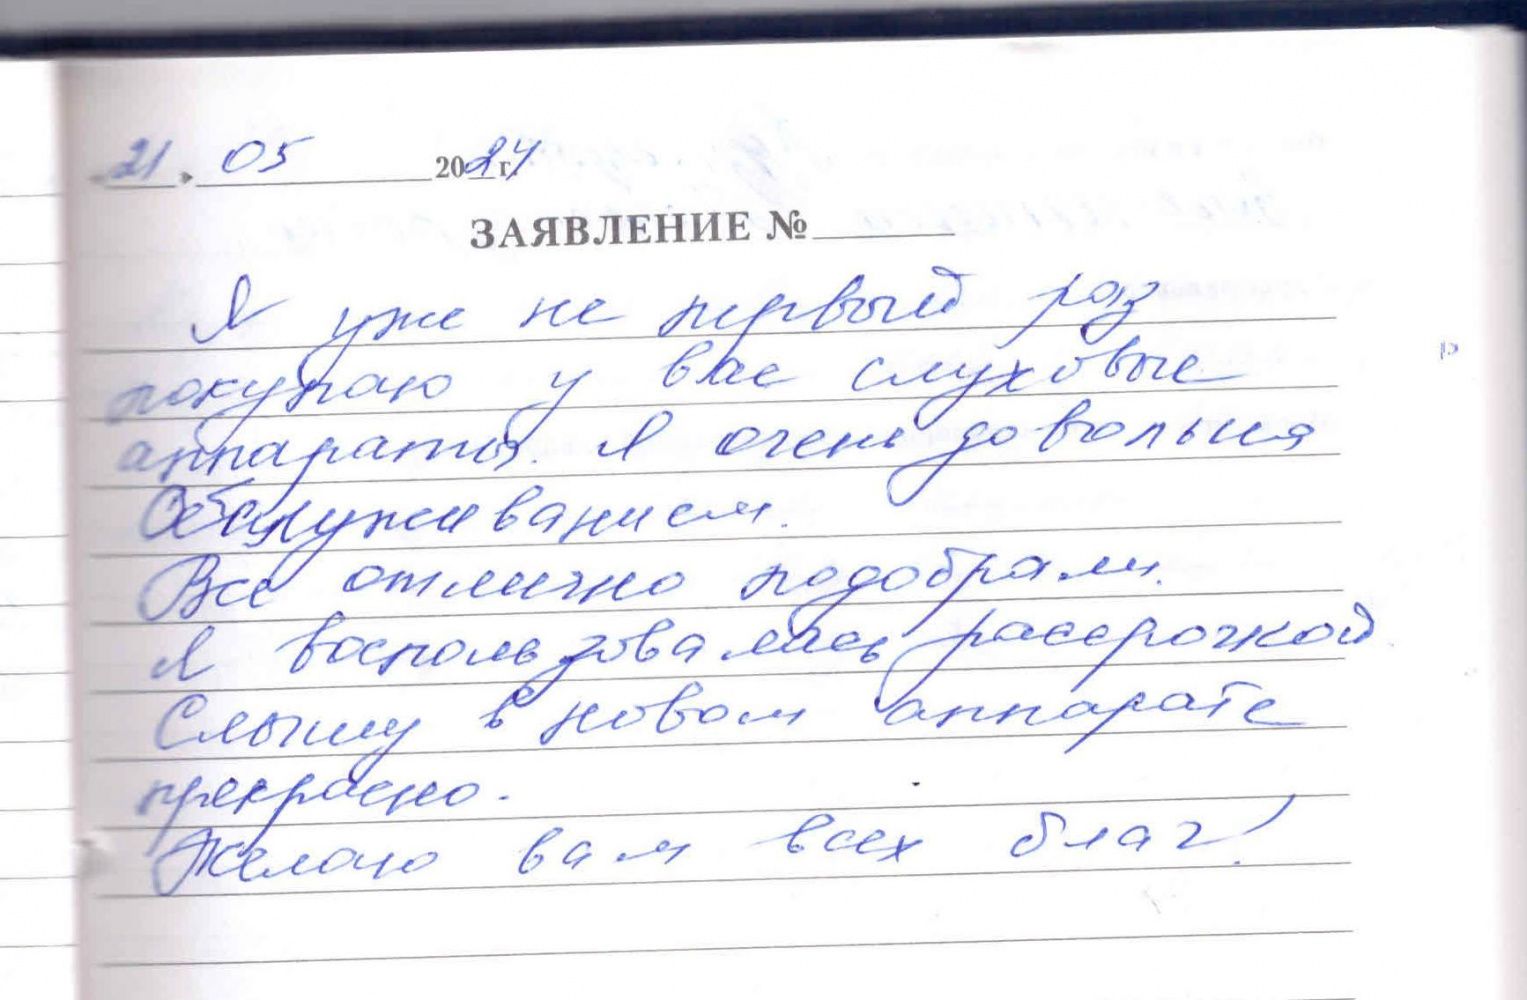 21. 05 2024 г.
ЗАЯВЛЕНИЕ №
Я уже не первый раз
покупаю у вас слуховые
аппараты. Я очень довольна
Обслуживанием.
Все отлично подобрали.
Я воспользовалась рассрочкой
Слышу в новом аппарате
прекрасно.
Желаю вам всех благ!